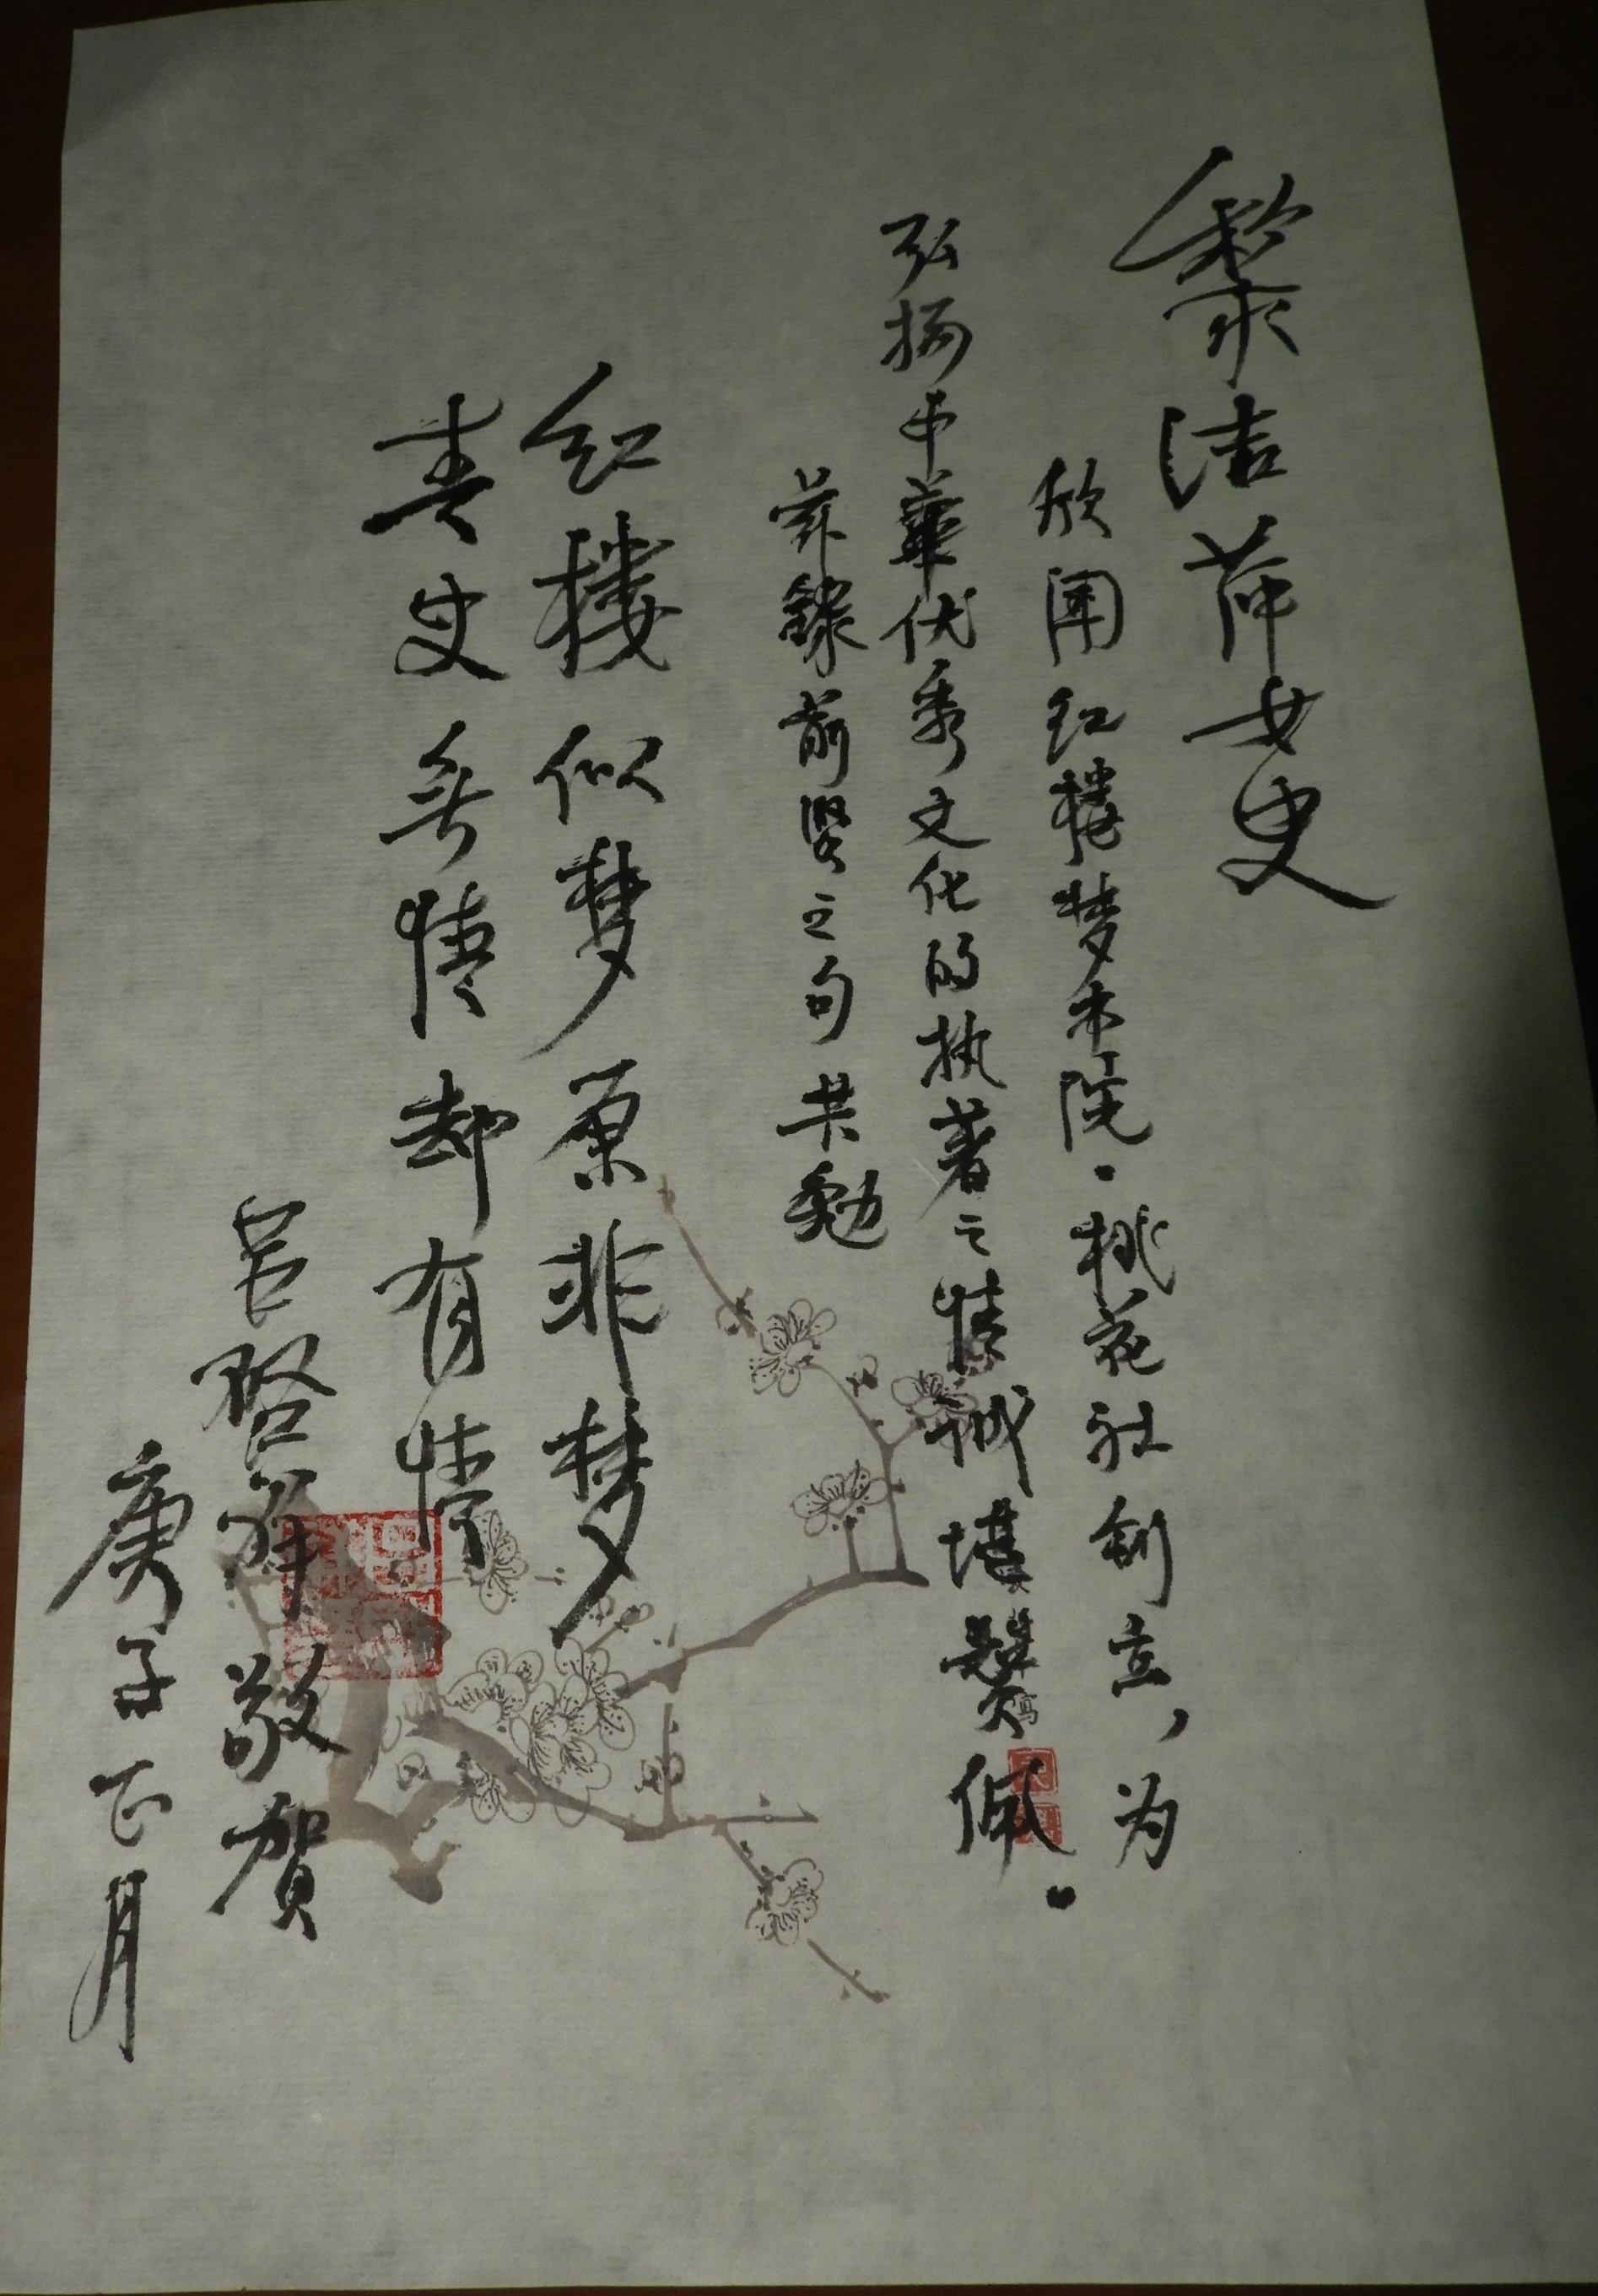 黎洁萍女史
欣闻红楼梦书院·桃花社创立，为
弘扬中華优秀文化的执著之情诚堪赞佩。
兹錄前贤之句共勉
红楼似梦原非梦
青史无情却有情
吕启祥敬贺
庚子正月